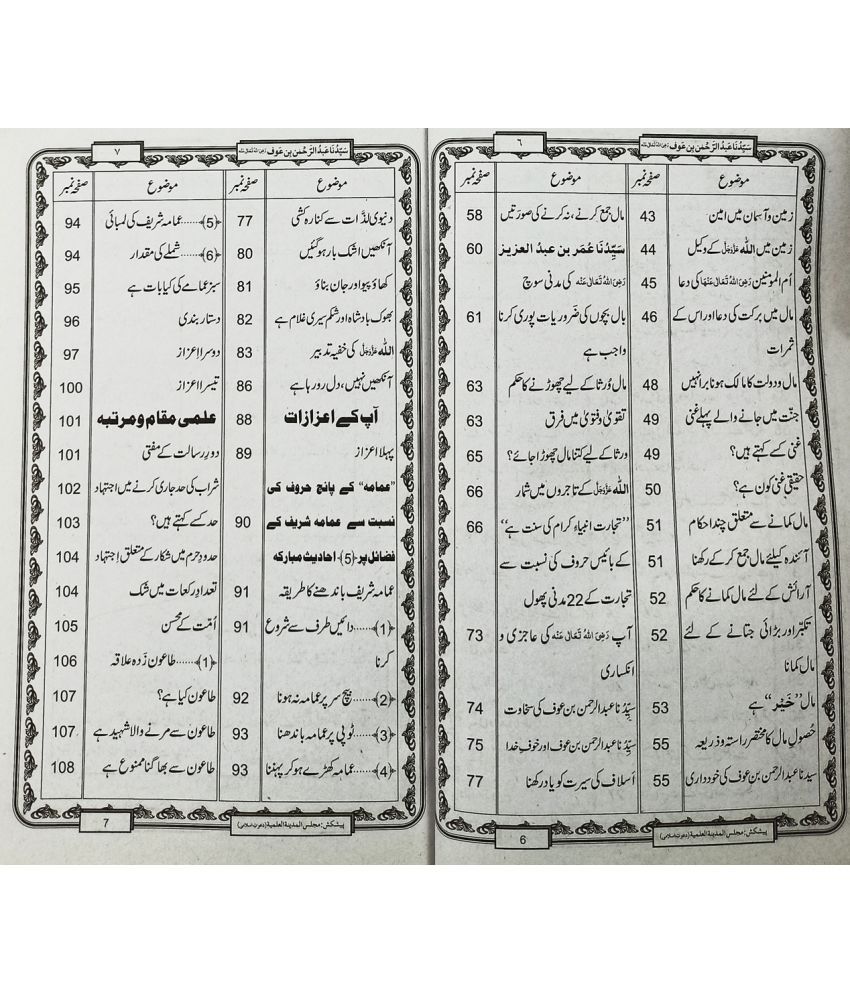 سَیِّدُنَا عَبْدُ الرَّحْمٰن بِن عَوف رَضِیَ اللّٰهُ تَعَالٰی عَنْهُ
٦
موضوع صفحہ نمبر
زمین و آسمان میں امین 43
زمین میں اللّٰه عَزَّوَجَلَّ کے وکیل 44
اُم المؤمنین رَضِیَ اللّٰهُ تَعَالٰی عَنْهَا کی دعا 45
مال میں برکت کی دعا اور اس کے 46
ثمرات
مال و دولت کا مالک ہونا برا نہیں 48
جنّت میں جانے والے پہلے غنی 49
غنی کسے کہتے ہیں؟ 49
حقیقی غنی کون ہے؟ 50
مال کمانے سے متعلق چند احکام 51
آئندہ کیلئے مال جمع کر کے رکھنا 51
آرائش کے لئے مال کمانے کا حکم 52
تکبّر اور بڑائی جتانے کے لئے 52
مال کمانا
مال ”خَیْر“ ہے 53
حُصولِ مال کا مختصر راستہ و ذریعہ 55
سیدنا عبد الرحمن بن عوف کی خودداری 55
موضوع صفحہ نمبر
مال جمع کرنے، نہ کرنے کی صورتیں 58
سَیِّدُنَا عُمَر بن عبدُ العزیز 60
رَضِیَ اللّٰهُ تَعَالٰی عَنْه کی مدنی سوچ
بال بچوں کی ضَروریات پوری کرنا 61
واجب ہے
مال وُرثا کے لیے چھوڑنے کا حکم 63
تقویٰ و فتویٰ میں فرق 63
ورثا کے لیے کتنا مال چھوڑا جائے؟ 65
اللّٰه عَزَّوَجَلَّ کے تاجروں میں شمار 66
”تجارت انبیاءِ کرام کی سنت ہے“ 66
کے بائیس حروف کی نسبت سے
تجارت کے 22 مدنی پھول
آپ رَضِیَ اللّٰهُ تَعَالٰی عَنْه کی عاجزی و 73
انکساری
سیِّدُنا عبد الرحمن بن عوف کی سخاوت 74
سیِّدُنا عبد الرحمن بن عوف اور خوفِ خدا 75
اَسلاف کی سیرت کو یاد رکھنا 77
پیشکش: مجلس المدینة العلمیة (دعوتِ اسلامی)
6
سَیِّدُنَا عَبْدُ الرَّحْمٰن بِن عَوف رَضِیَ اللّٰهُ تَعَالٰی عَنْهُ
٧
موضوع صفحہ نمبر
دنیوی لذّات سے کنارہ کشی 77
آنکھیں اشک بار ہو گئیں 80
کھاؤ پیو اور جان بناؤ 81
بھوک بادشاہ اور شکم سیری غلام ہے 82
اللّٰه عَزَّوَجَلَّ کی خفیہ تدبیر 83
آنکھیں نہیں، دل رو رہا ہے 86
آپ کے اعزازات 88
پہلا اعزاز 89
”عمامہ“ کے پانچ حروف کی
نسبت سے عمامہ شریف کے 90
فضائل پر (5) احادیثِ مبارکہ
عمامہ شریف باندھنے کا طریقہ 91
(1)…… دائیں طرف سے شروع 91
کرنا
(2)…… بیچ سر پر عمامہ نہ ہونا 92
(3)…… ٹوپی پر عمامہ باندھنا 93
(4)…… عمامہ کھڑے ہو کر پہننا 93
موضوع صفحہ نمبر
(5)…… عمامہ شریف کی لمبائی 94
(6)…… شملے کی مقدار 94
سبز عمامے کی کیا بات ہے 95
دستار بندی 96
دوسرا اعزاز 97
تیسرا اعزاز 100
علمی مقام و مرتبہ 101
دورِ رسالت کے مفتی 101
شراب کی حد جاری کرنے میں اجتہاد 102
حد کسے کہتے ہیں؟ 103
حدودِ حرم میں شکار کے متعلق اِجتہاد 104
تعدادِ رکعات میں شک 104
اُمّت کے محسن 105
(1)…… طاعون زَدہ علاقہ 106
طاعون کیا ہے؟ 107
طاعون سے مرنے والا شہید ہے 107
طاعون سے بھاگنا ممنوع ہے 108
پیشکش: مجلس المدینة العلمیة (دعوتِ اسلامی)
7